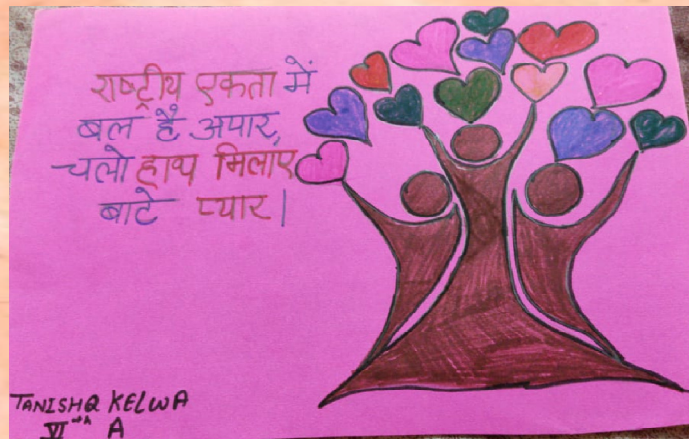 राष्ट्रीय एकता में
बल है अपार,
चलो हाथ मिलाए
बाटे प्यार|
TANISHQ KELWA
VIth A